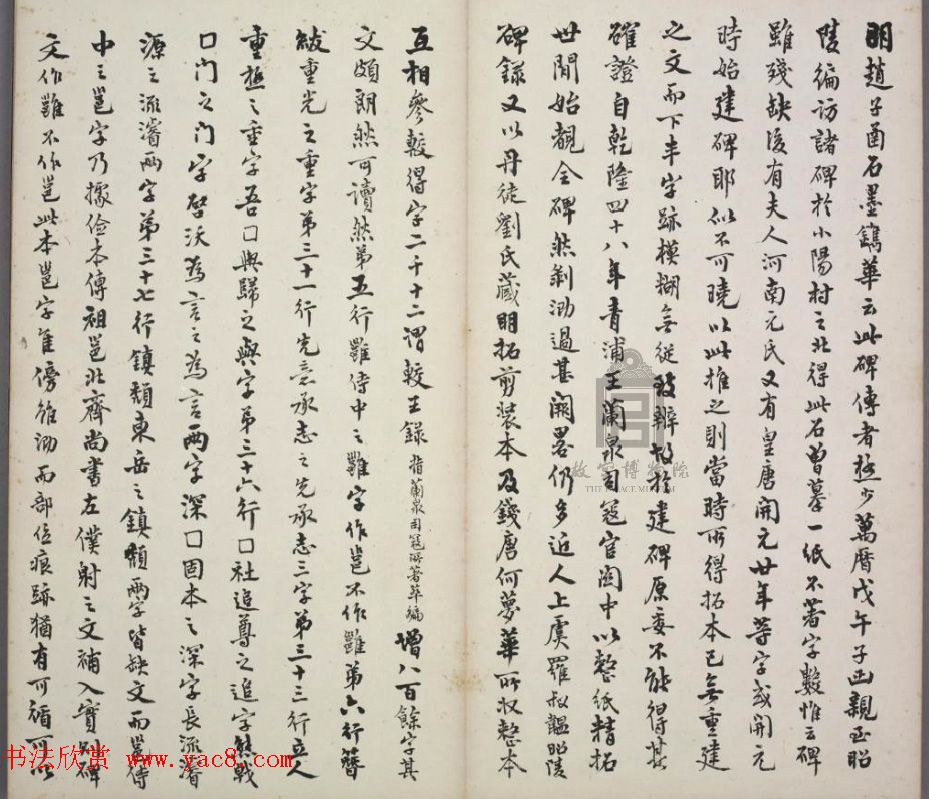 明趙子函石墨鐫華云此碑傳者極少萬曆戊午子函親至昭
陵徧訪諸碑於小陽村之北得此石曾摹一紙不著字數惟云碑
雖殘缺後有夫人河南元氏又有皇唐開元廿年等字或開元
時始建碑耶似不可曉以此推之則當時所得拓本已無重建
之文而下半字跡模糊無從攷辨故於建碑原委不能得其
確證自乾隆四十八年青浦王蘭泉司寇官關中以整紙精拓
世間始覩全碑然剝泐過甚闕畧仍多近人上虞羅叔韞昭陵
碑錄又以丹徒劉氏藏明拓剪裝本及錢唐何夢華所收整本
互相參較得字二千十二謂較王錄指蘭泉司寇所著萃編增八百餘字其
文頗朗然可讀然第五行雖侍中之雖字作邕不作雖第六行簪
紱重光之重字第三十一行先意承志之先承志三字第三十三行立人
重極之重字吾口與歸之與字第三十六行口社追尊之追字熊戰
口門之門字啓沃為言之為言兩字深口固本之深字長流濬
源之流濬兩字第三十七行鎮頹東岳之鎮頹兩字皆缺文而邕侍
中之邕字乃據儉本傳祖邕北齊尚書左僕射之文補入實則碑
文作雖不作邕此本邕字隹傍雖泐而部位痕跡猶有可循可以
故宮博物院
THE PALACE MUSEUM
书法欣赏 www.yac8.com